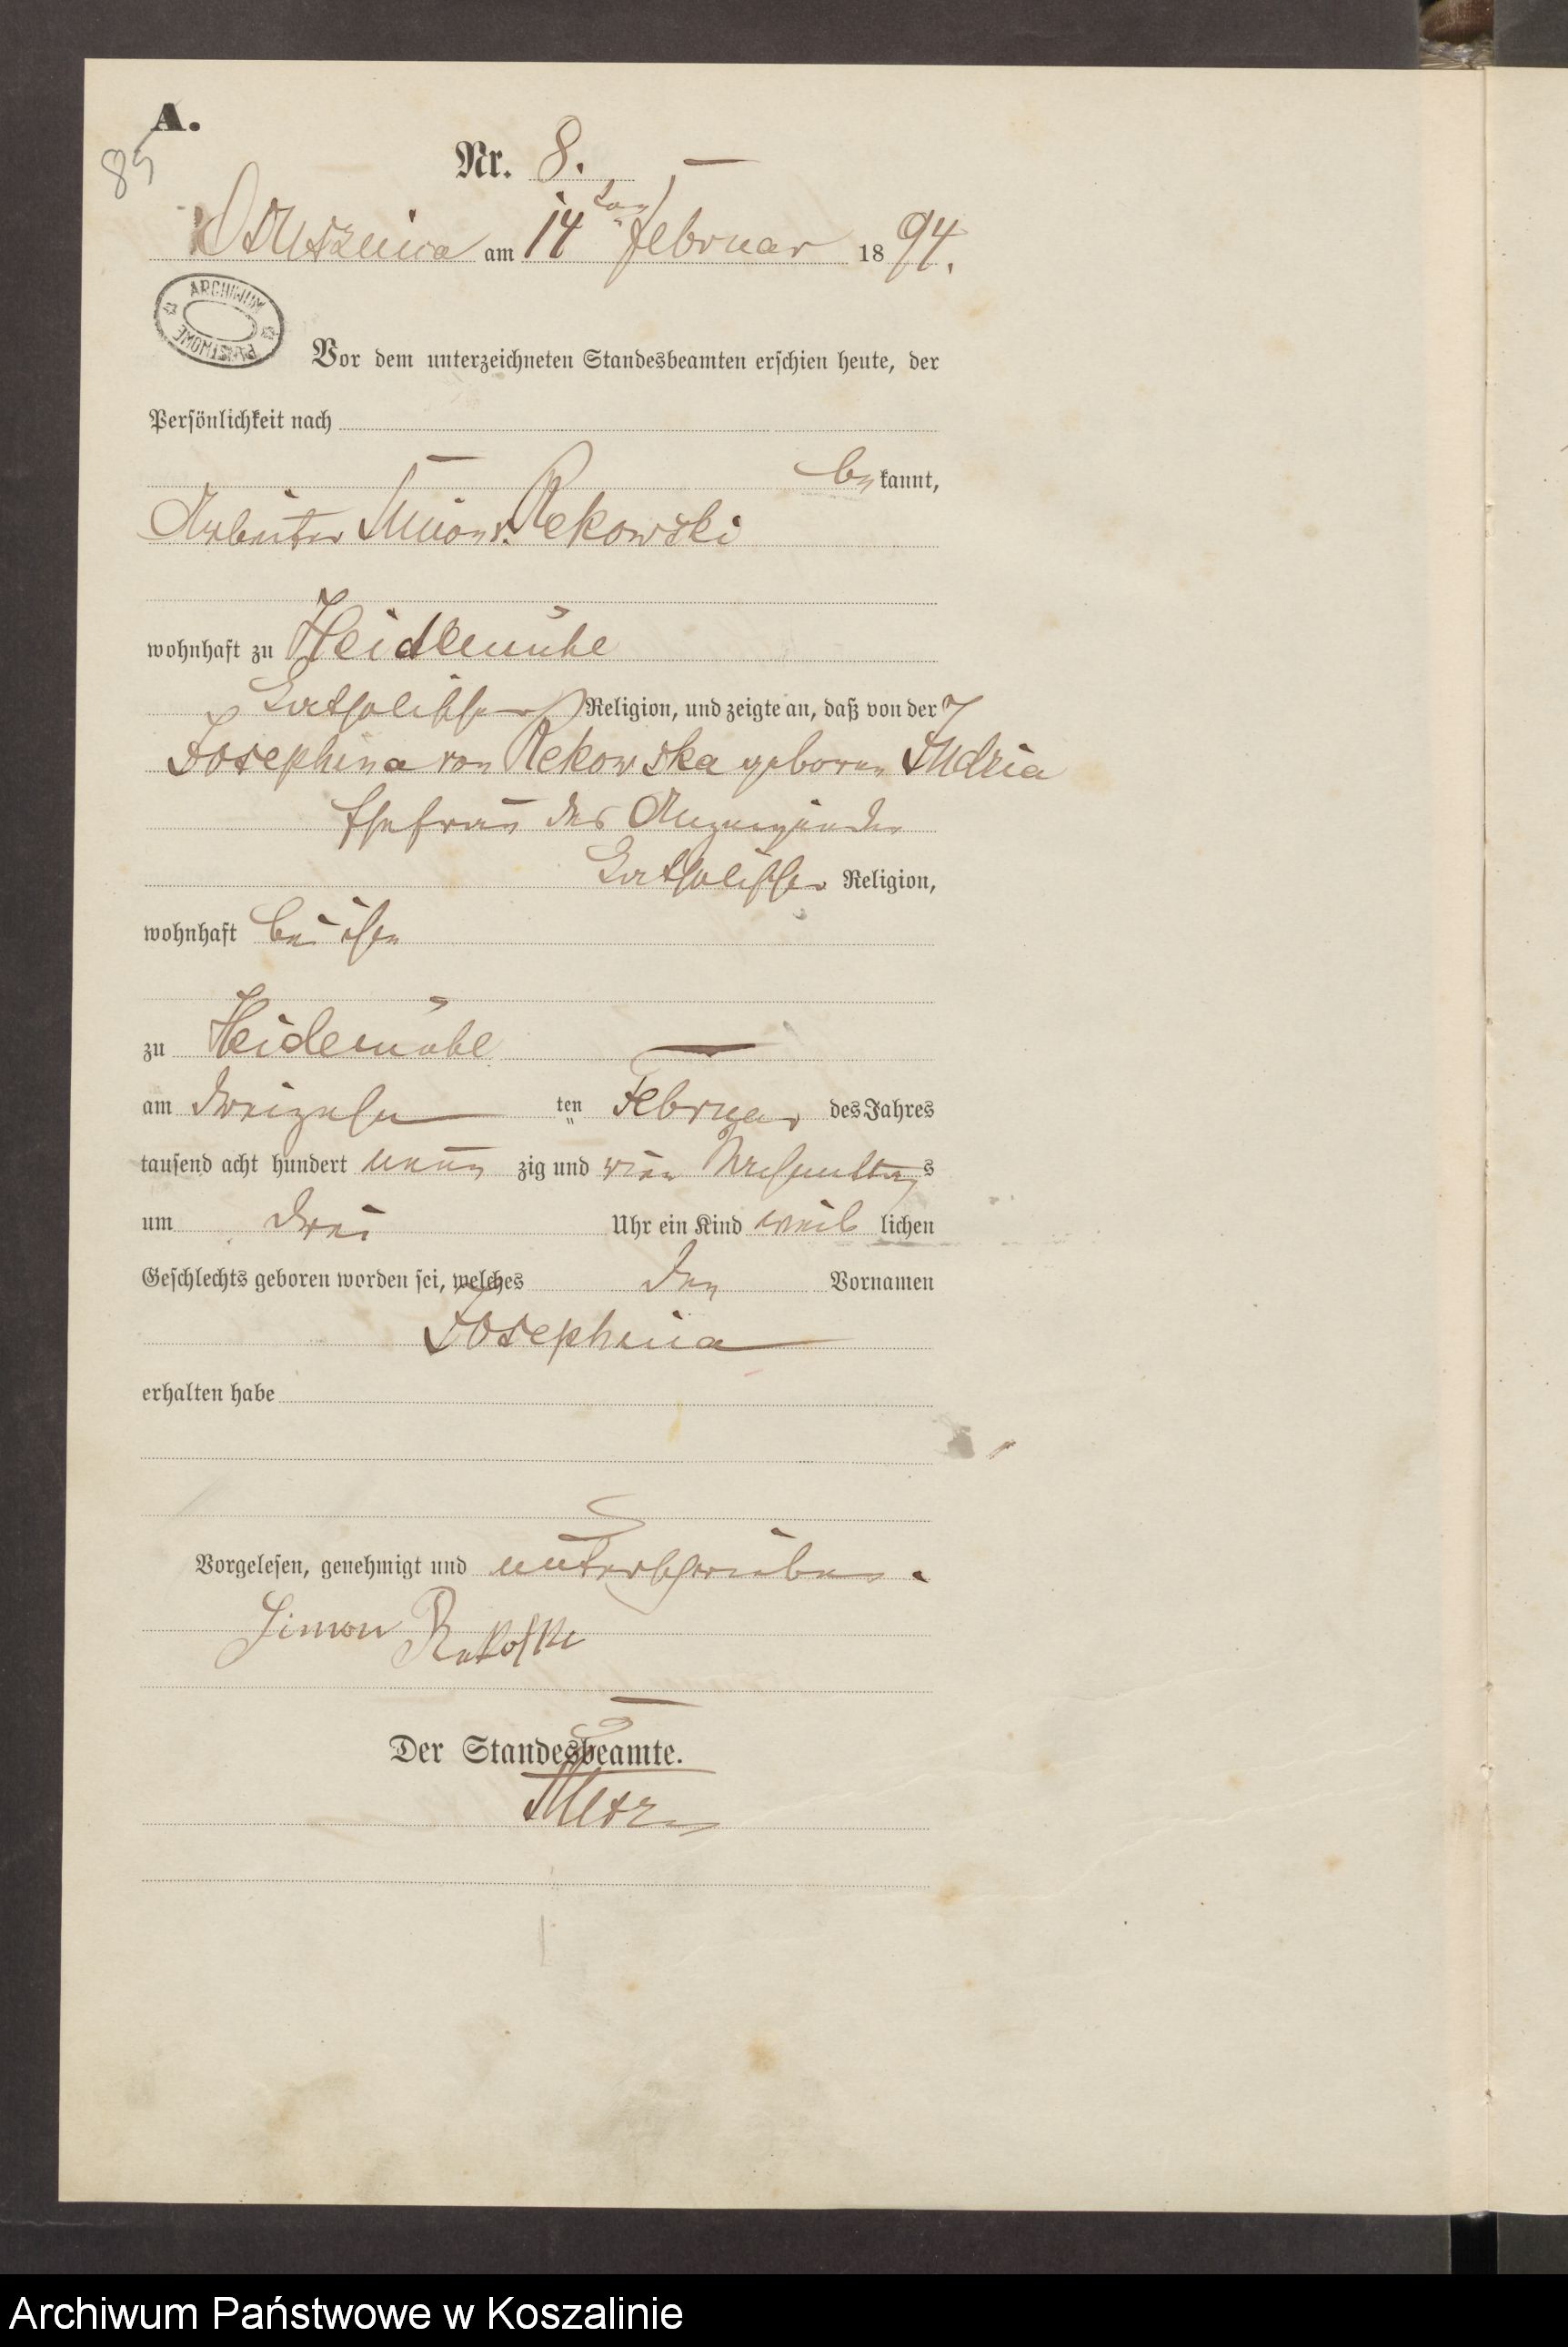 A.
85
Nr. 8.
am 14ten Februar 1894.
ARCHIWUM PAŃSTWOWE
Vor dem unterzeichneten Standesbeamten erschien heute, der
Persönlichkeit nach
bekannt,
Arbeiter Simon v. Rekowski
wohnhaft zu Heidemühle
katholischer Religion, und zeigte an, daß von der
Josephina von Rekowska geboren
Ehefrau des Anzeigenden
katholischer Religion,
wohnhaft bei ihm
zu Heidemühl
am dreizehn ten Februar des Jahres
tausend acht hundert neun zig und vier Nachmittags
um drei Uhr ein Kind weiblichen
Geschlechts geboren worden sei, welches den Vornamen
Josephina
erhalten habe
Vorgelesen, genehmigt und unterschrieben.
Simon Rekofski
Der Standesbeamte.
Archiwum Państwowe w Koszalinie